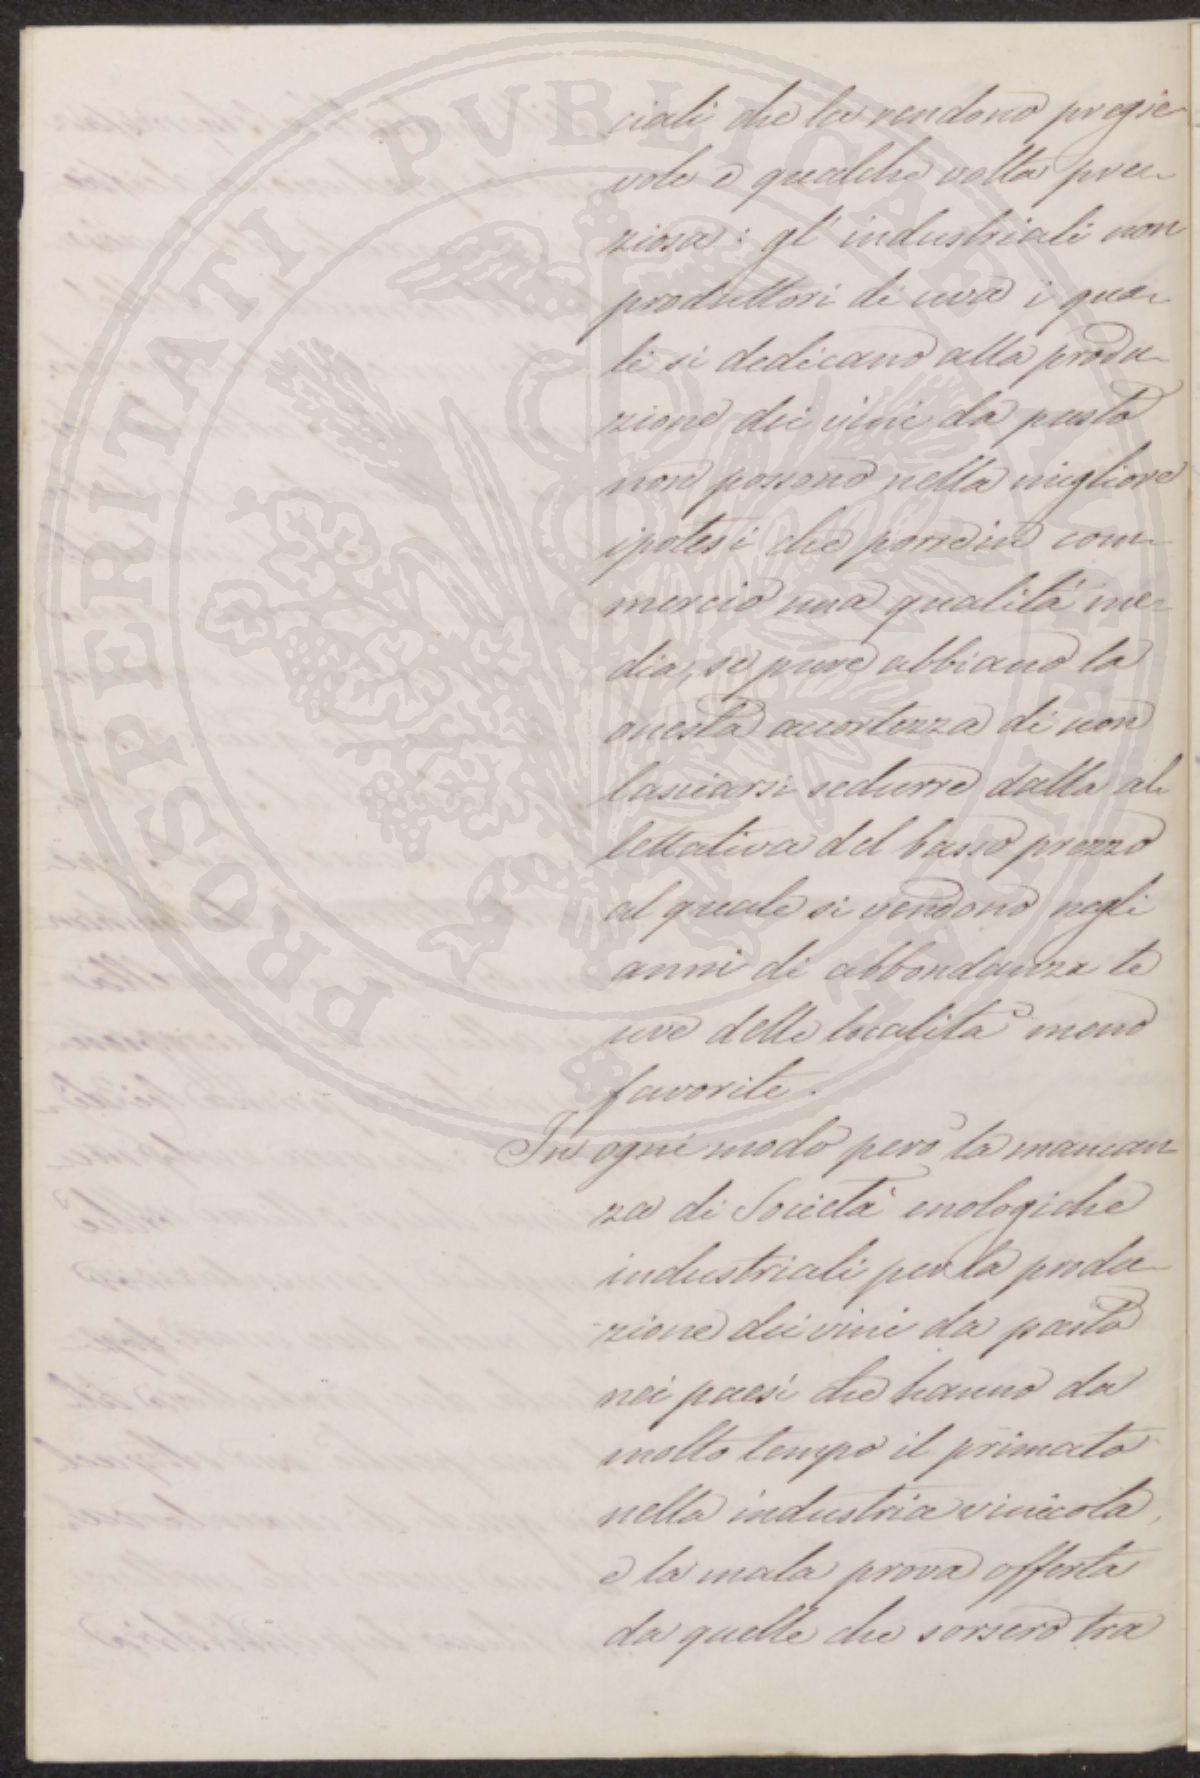 PROSPERITATI PVBLICAE AVGENDAE
ciali che la rendono pregie-
vole e qualche volta pre-
ziosa: gl'industriali non
produttori di uva i qua-
li si dedicano alla produ-
zione dei vini da pasto
non possono nella migliore
ipotesi che porre in com-
mercio una qualità me-
dia, se pure abbiano la
onesta accortezza di non
lasciarsi sedurre dalla al-
lettativa del basso prezzo
al quale si vendono negli
anni di abbondanza le
uve delle località meno
favorite.
In ogni modo però la mancan-
za di Società enologiche
industriali per la produ-
zione dei vini da pasto
nei paesi che hanno da
molto tempo il primato
nella industria vinicola,
e la mala prova offerta
da quelle che sorsero tra